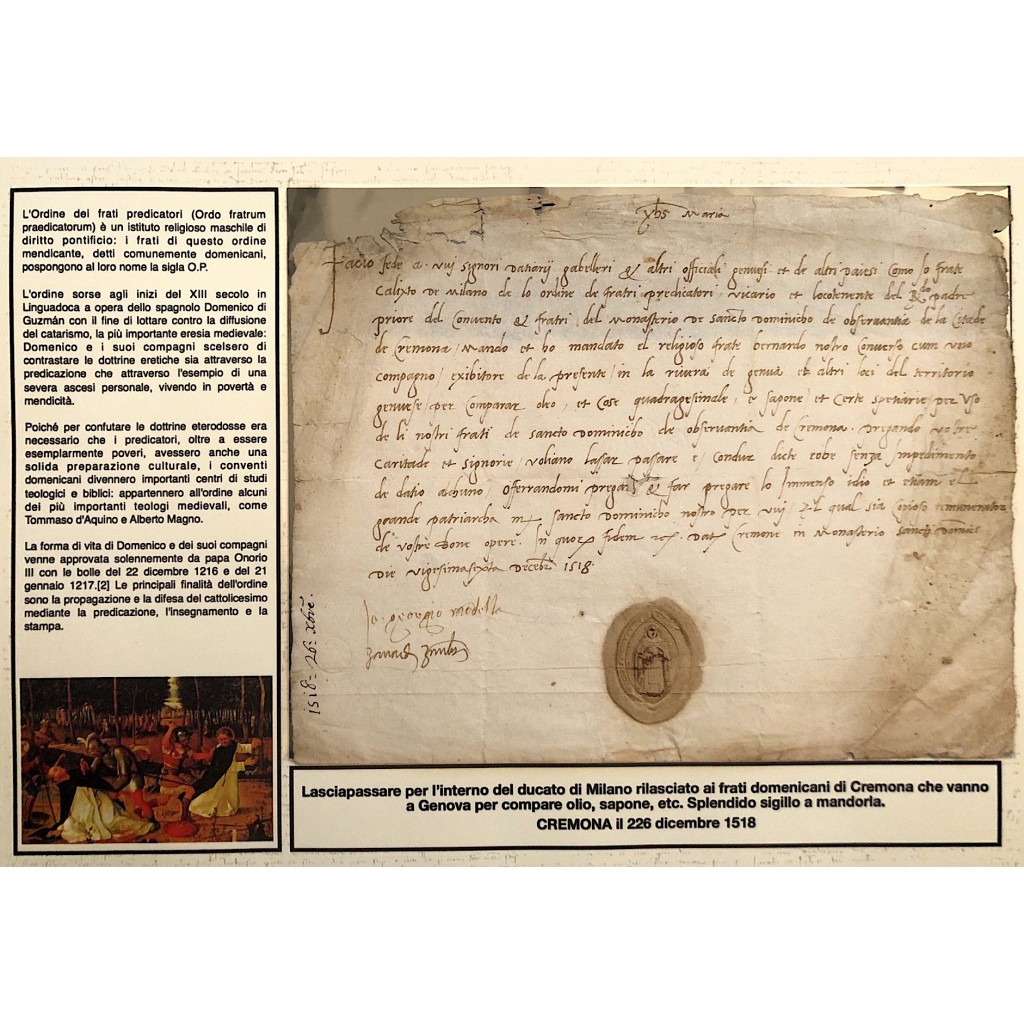 L'Ordine dei frati predicatori (Ordo fratrum
praedicatorum) è un istituto religioso maschile di
diritto pontificio: i frati di questo ordine
mendicante, detti comunemente domenicani,
pospongono al loro nome la sigla O.P.
L'ordine sorse agli inizi del XIII secolo in
Linguadoca a opera dello spagnolo Domenico di
Guzmán con il fine di lottare contro la diffusione
del catarismo, la più importante eresia medievale:
Domenico e i suoi compagni scelsero di
contrastare le dottrine eretiche sia attraverso la
predicazione che attraverso l'esempio di una
severa ascesi personale, vivendo in povertà e
mendicità.
Poiché per confutare le dottrine eterodosse era
necessario che i predicatori, oltre a essere
esemplarmente poveri, avessero anche una
solida preparazione culturale, i conventi
domenicani divennero importanti centri di studi
teologici e biblici: appartennero all'ordine alcuni
dei più importanti teologi medievali, come
Tommaso d'Aquino e Alberto Magno.
La forma di vita di Domenico e dei suoi compagni
venne approvata solennemente da papa Onorio
III con le bolle del 22 dicembre 1216 e del 21
gennaio 1217.[2] Le principali finalità dell'ordine
sono la propagazione e la difesa del cattolicesimo
mediante la predicazione, l'insegnamento e la
stampa.
yhs Maria
Facio fede a vuj Signori datiarij gabelleri & altri officiali genuesi et de altri paiesi Como Io frate
Calixto de Milano de lo ordine de fratri predicatori, vicario et locotenente del padre
priore del Convento & fratri del Monasterio de Sancto Dominicho de observantia de la Citade
de Cremona, Mando et ho mandato el religioso frate bernardo nostro Converso cum uno
Compagno, exibitore de la presente, in la rivera de genua et altri loci del territorio
genuese, per Comparar oleo, et Cose quadragesimale, e sapone, et Certe spetiarie, per Uso
de li nostri frati de Sancto Dominicho de observantia de Cremona. Pregando vostre
Caritade et Signorie, voliano lassar passare e Condur dicte robe senza Impedimento
de datio alchuno, Offerrandomi pregar & far pregare lo Immenso idio et etiam el
grande patriarcha Sancto Dominicho nostro per vuj qual sia remunerator
de vostre bone opere. In fidem Cremone in Monasterio
Die vigesimasexta Decebr 1518
Io. georgio
1518 26
Lasciapassare per l'interno del ducato di Milano rilasciato ai frati domenicani di Cremona che vanno
a Genova per compare olio, sapone, etc. Splendido sigillo a mandorla.
CREMONA il 226 dicembre 1518